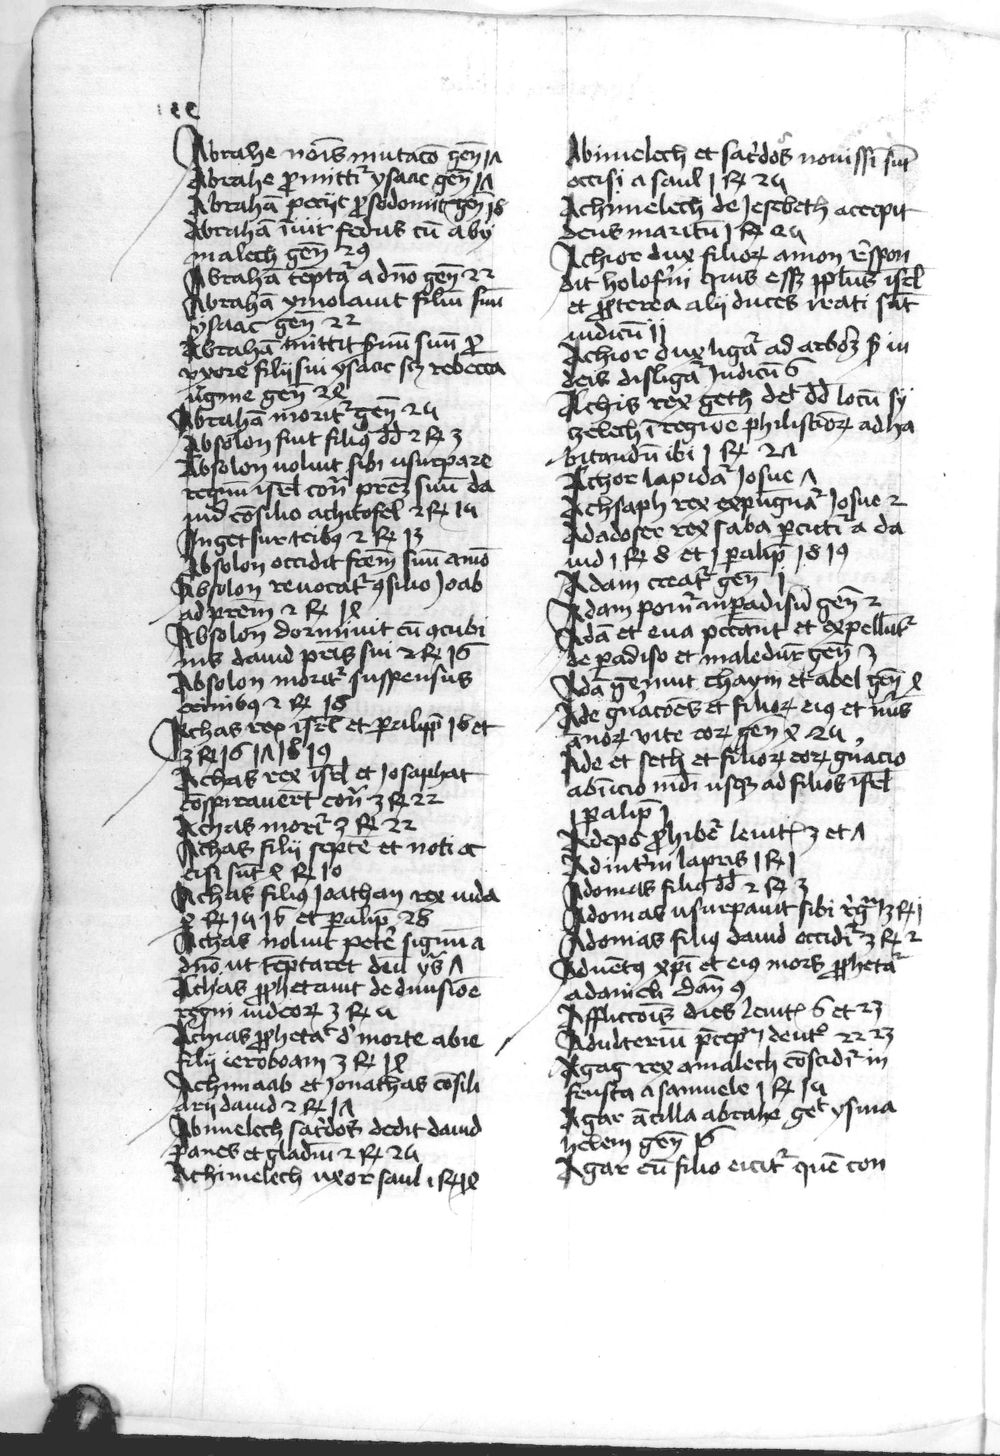 Abrahe nois mutaco gen 17
Abrahe promittit ysaac gen 17
Abraham peciit pro sodomit gen 18
Abraham iniit fedus cu aby
malech gen 29
Abraham teptat a dno gen 22
Abraham ymolauit filiu suu
ysaac gen 22
Abraham mittit suu pro
vxore filij sui ysaac scz rebecca
gen 24
Abraham morit gen 25
Absolon fuit filius dd 2 R 3
Absolon noluit sibi vsurpare
regnum isrl con prem suu da
uid consilio achitofel 2 R 15
In getsur tribus 2 R 13
Absolon occidit frem suu amo
Absolon reuocatur consilio Joab
ad prem 2 R 14
Absolon dorminit cu concubi
nis dauid pris sui 2 R 16
Absolon moritur suspensus
crinibus 2 R 18
Achas rex isrl et paralipp 16 et
3 R 16 17 18 19
Achas rex isrl et Josaphat
conspirauerut con 3 R 22
Achas morit 3 R 22
Achas filij septe et noti oc
cisi sut 4 R 10
Achas filius Joathan rex iuda
4 R 15 16 et paralip 28
Achas noluit petere signu a
dno ut teptaret deu ys 7
Achias prophetauit de diuisioe
regni iudeor 3 R 11
Achias prophetat de morte abie
filij ieroboam 3 R 14
Achimaab et Jonathas consili
arij dauid 2 R 17
Abimelech sacerdos dedit dauid
panes et gladiu 2 R 21
Achimelech uxor saul 1 R 14
Abimelech et sacerdos nouissi sut
occisi a saul 1 R 22
Achimelech de Jesebeth accepit
deus maritu 1 R 25
Achior dux filior amon respon
dit holoferni quis esset populus isrl
et propterea alij duces irati sut
iudicum 11
Achior dux ligatur ad arbore in
deis disligatur Judicum 6
Achis rex geth det dd locu sy
zelech i regioe philistior ad ha
bitandu ibi 1 R 27
Achor lapidatur Josue 7
Achsaph rex expugnatur Josue 2
Adadoser rex saba percutitur a da
uid 1 R 8 et 1 paralip 18 19
Adam creatur gen 1
Adam ponitur in paradisu gen 2
Ada et eua peccant et expellutur
de paradiso et maledicutur gen 3
Ada genuit chaym et abel gen 4
Ade gnacoes et filior eius et nus
annor vite eor gen 4 25
Ade et seth et filior eor gnacio
ab inicio mdi usque ad filios isrl
1 paralip 1
Adeps prohibetur leuit 3 et 7
Adiutorium lapis 1 R 1
Adomas filius dd 2 R 3
Adomas usurpauit sibi regnum 3 R 1
Adomas filius dauid occiditur 3 R 2
Aduentus xpi et eius mors prophetatur
a daniele dan 9
Affliccois dies leuit 6 et 23
Adulterium preceptum deut 22 23
Agag rex amalech conscidit in
frusta a samuele 1 R 15
Agar ancilla abrahe genuit ysma
helem gen 16
Agar cu filio eicit que con